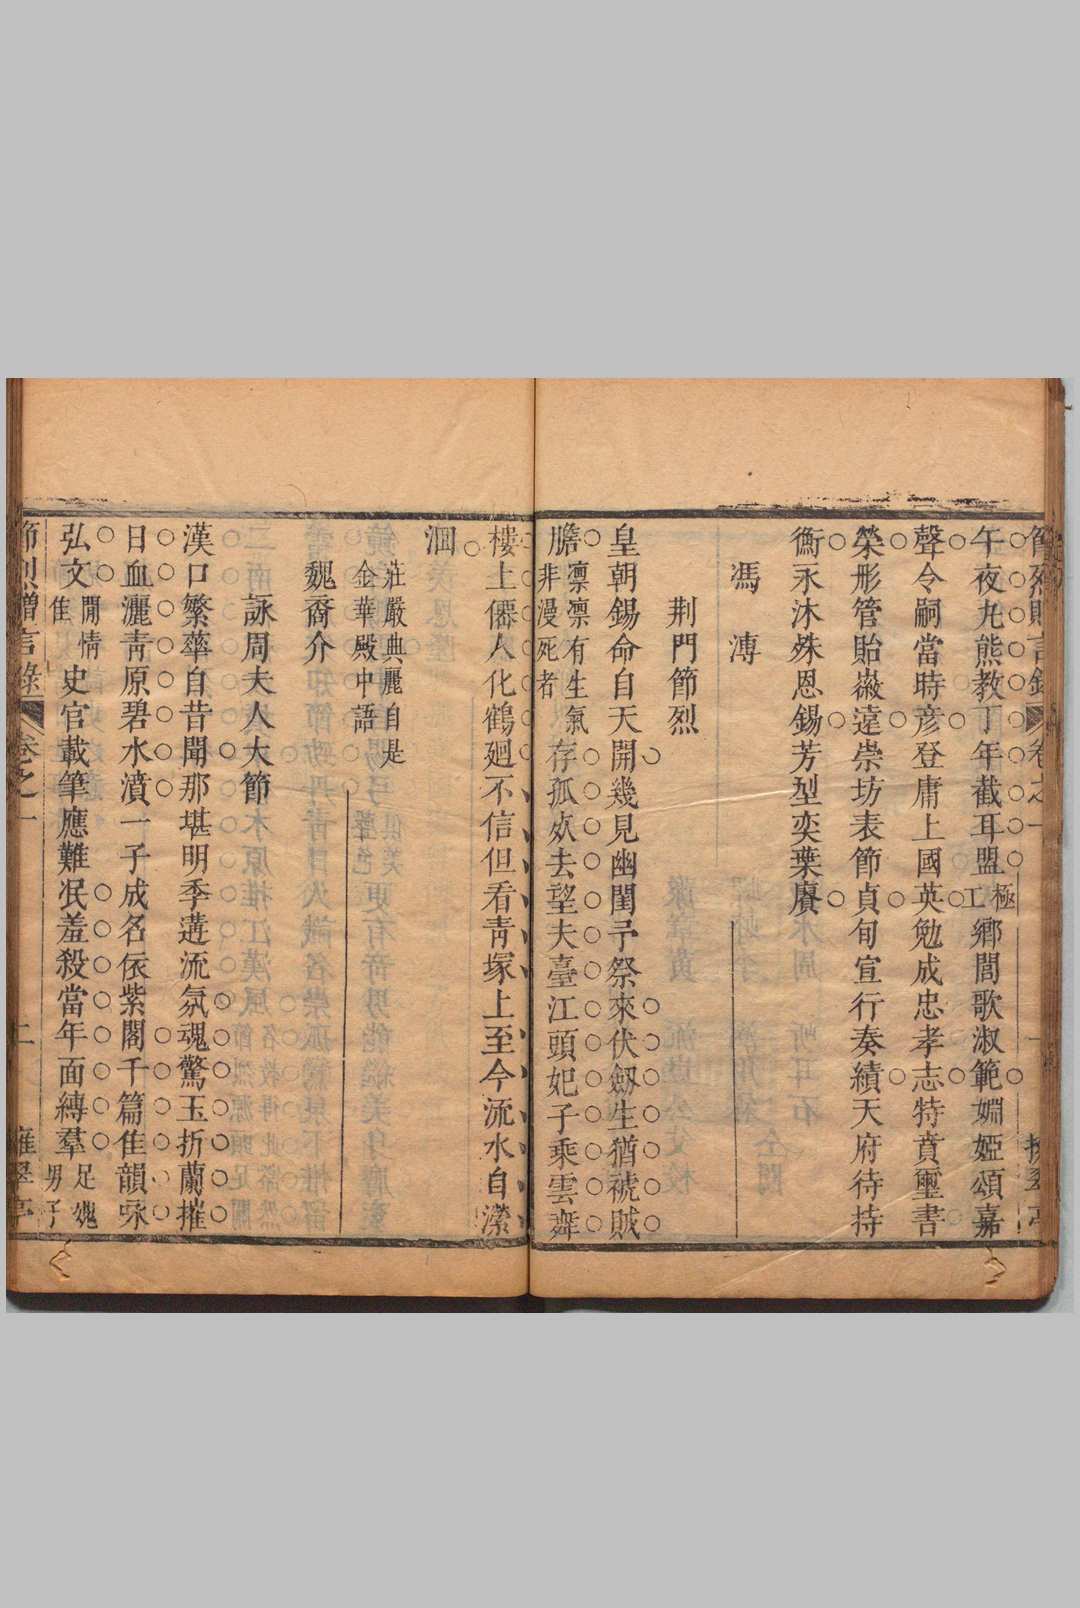 節烈贈言錄 卷之一
午夜九熊教丁年截耳盟極工鄉閭歌淑範嫺婭頌嘉
聲令嗣當時彥登庸上國英勉成忠孝志特賁璽書
榮形管貽嶶遠崇坊表節貞旬宣行奏績天府待持
衡永沐殊恩錫芳型奕葉賡
馮溥
荆門節烈
皇朝錫命自天開幾見幽閨予祭來伏劔生猶褫賊
膽凛凛有生氣非漫死者存孤奺去望夫臺江頭妃子乘雲舞
樓上僊人化鶴廻不信但看靑塚上至今流水自瀠
洄莊嚴典麗自是金華殿中語
魏裔介
詠周夫人大節
漢口繁華自昔聞那堪明季遘流氛魂驚玉折蘭摧
日血灑靑原碧水濆一子成名依紫閣千篇隹韻咏
弘文閒情隹史官載筆應難泯羞殺當年面縛羣足媿男子
節烈贈言錄 卷之一 二 擁翠亭